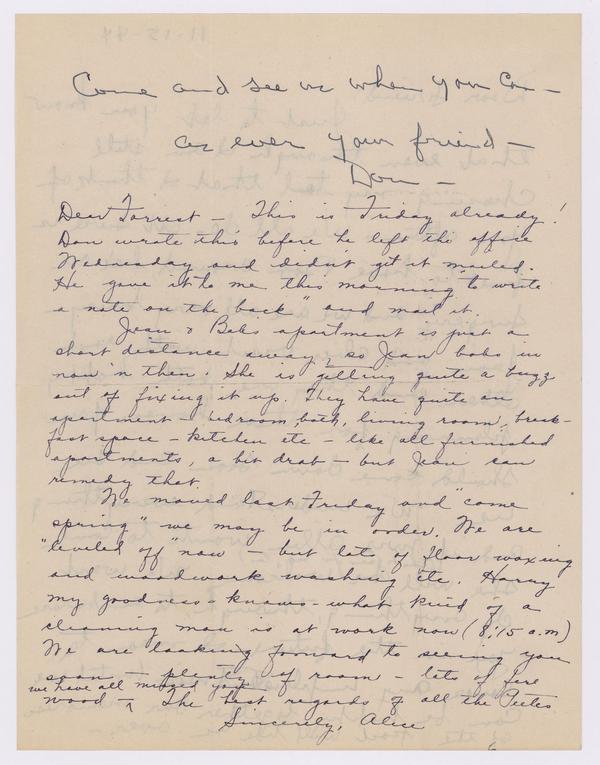 Come and see us when you can —
as ever your friend —
Don —
Dear Forrest — This is Friday already!
Don wrote this before he left the office
Wednesday and didn't get it mailed.
He gave it to me this morning "to write
a note on the back" and mail it.
Jean & Bobs apartment is just a
short distance away, so Jean bobs in
now 'n then. She is getting quite a buzz
out of fixing it up. They have quite an
apartment — bedroom, bath, living room, break-
fast space — kitchen etc — like all furnished
apartments, a bit drab — but Jean can
remedy that.
We moved last Friday and "come
spring" we may be in order. We are
"leveled off" now — but lots of floor waxing
and woodwork washing etc. Harry
my goodness knows — what kind of a
cleaning man is at work now (8:15 a.m)
We are looking forward to seeing you
soon — plenty of room — lots of fire
we have all missed you
wood — The best regards of all the
Sincerely, Alice